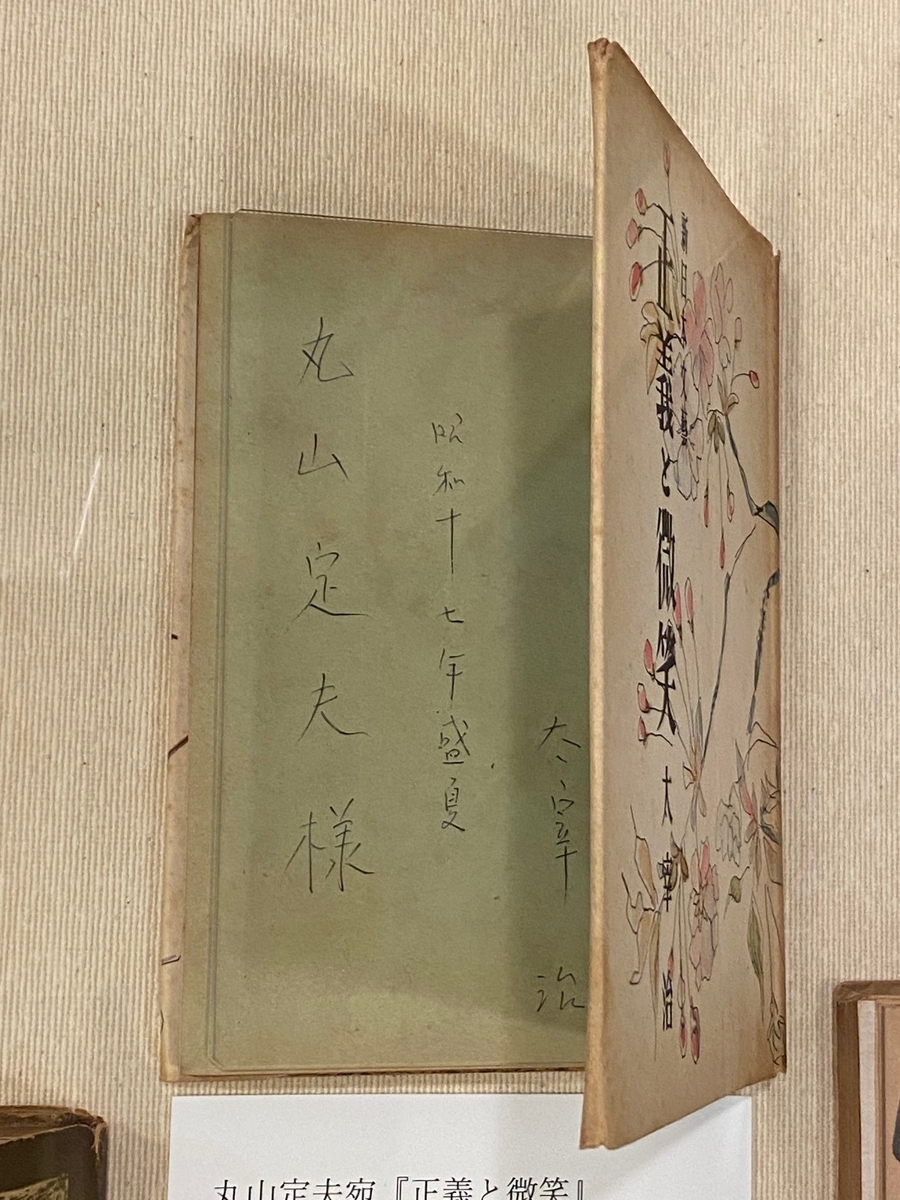 新日本文藝
正義と微笑
太宰治
太宰治
昭和十七年盛夏
丸山定夫様
丸山定夫宛『正義と微笑』